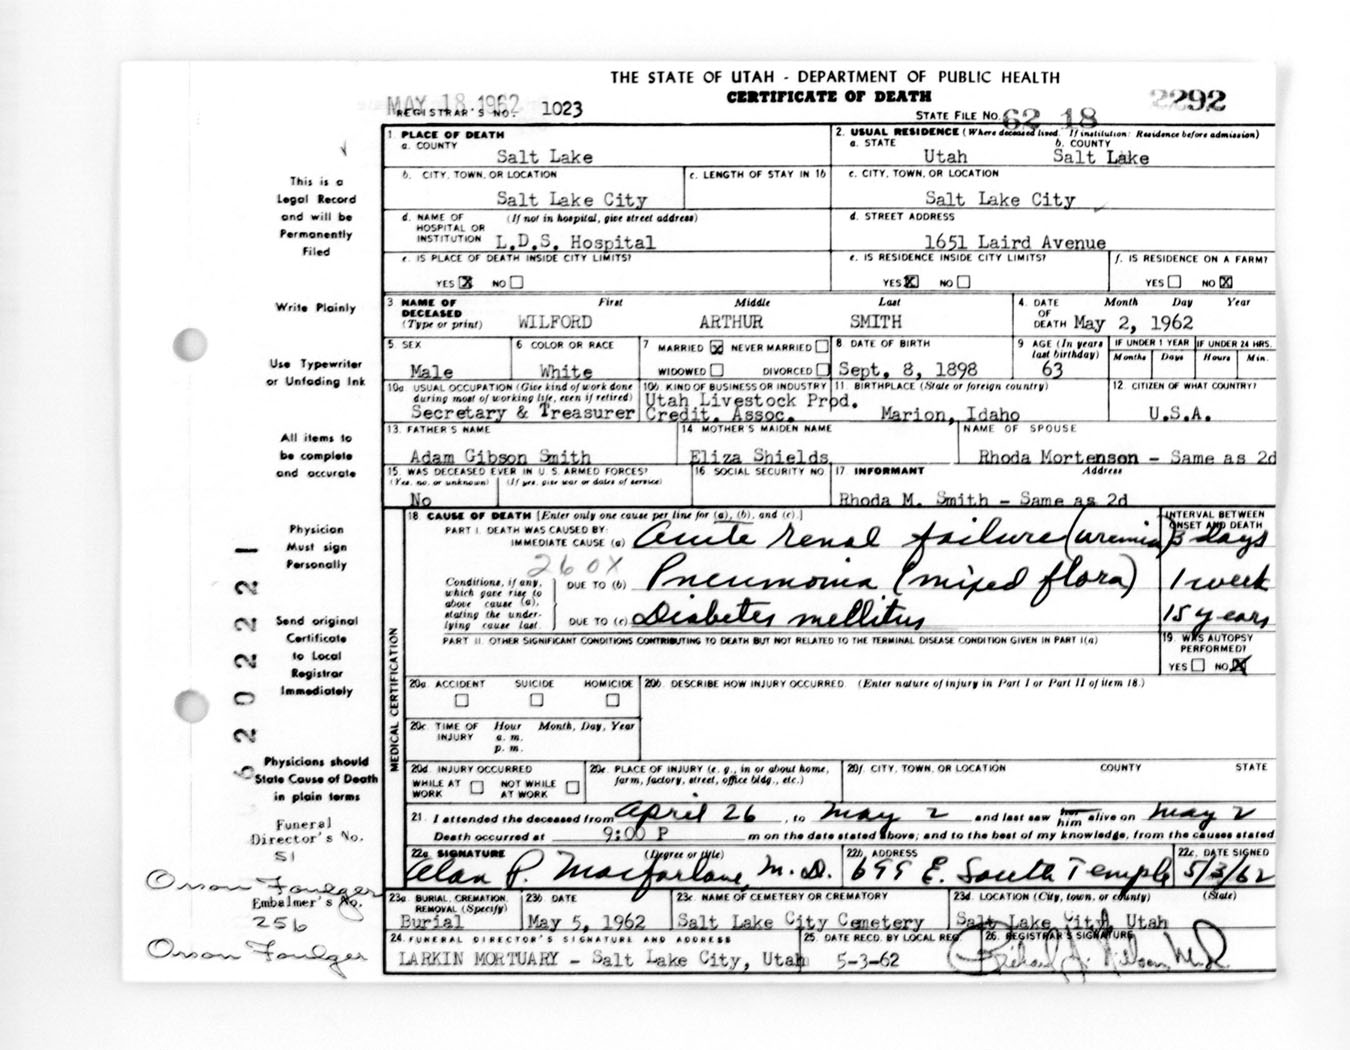 THE STATE OF UTAH - DEPARTMENT OF PUBLIC HEALTH
CERTIFICATE OF DEATH
MAY 18 1962
REGISTRAR'S NO. 1023
2292
STATE FILE NO. 62 18
This is a
Legal Record
and will be
Permanently
Filed
Write Plainly
Use Typewriter
or Unfading Ink
All items to
be complete
and accurate
Physician
Must sign
Personally
Send original
Certificate
to Local
Registrar
Immediately
Physicians should
State Cause of Death
in plain terms
Funeral
Director's No.
51
Orson Foulger
Embalmer's No.
256
Orson Foulger
1. PLACE OF DEATH
a. COUNTY
Salt Lake
2. USUAL RESIDENCE (Where deceased lived. If institution: Residence before admission)
a. STATE b. COUNTY
Utah Salt Lake
b. CITY, TOWN, OR LOCATION
Salt Lake City
c. LENGTH OF STAY IN 1b
c. CITY, TOWN, OR LOCATION
Salt Lake City
d. NAME OF (If not in hospital, give street address)
HOSPITAL OR
INSTITUTION L.D.S. Hospital
d. STREET ADDRESS
1651 Laird Avenue
e. IS PLACE OF DEATH INSIDE CITY LIMITS?
YES X NO
e. IS RESIDENCE INSIDE CITY LIMITS?
YES X NO
f. IS RESIDENCE ON A FARM?
YES NO X
3 NAME OF First Middle Last
DECEASED
(Type or print) WILFORD ARTHUR SMITH
4. DATE Month Day Year
OF
DEATH May 2, 1962
5. SEX
Male
6 COLOR OR RACE
White
7 MARRIED X NEVER MARRIED
WIDOWED DIVORCED
8 DATE OF BIRTH
Sept. 8, 1898
9 AGE (In years
last birthday)
63
IF UNDER 1 YEAR IF UNDER 24 HRS.
Months Days Hours Min.
10a USUAL OCCUPATION (Give kind of work done
during most of working life, even if retired)
Secretary & Treasurer
10b. KIND OF BUSINESS OR INDUSTRY
Utah Livestock Prod.
Credit. Assoc.
11. BIRTHPLACE (State or foreign country)
Marion, Idaho
12. CITIZEN OF WHAT COUNTRY?
U.S.A.
13. FATHER'S NAME
Adam Gibson Smith
14 MOTHER'S MAIDEN NAME
Eliza Shields
NAME OF SPOUSE
Rhoda Mortenson - Same as 2d
15. WAS DECEASED EVER IN U.S. ARMED FORCES?
(Yes, no, or unknown) (If yes, give war or dates of service)
No
16 SOCIAL SECURITY NO
17 INFORMANT Address
Rhoda M. Smith - Same as 2d
MEDICAL CERTIFICATION
18 CAUSE OF DEATH [Enter only one cause per line for (a), (b), and (c).]
PART I. DEATH WAS CAUSED BY:
IMMEDIATE CAUSE (a) Acute renal failure (uremia)
INTERVAL BETWEEN
ONSET AND DEATH
3 days
260X
Conditions, if any,
which gave rise to
above cause (a),
stating the under-
lying cause last.
DUE TO (b) Pneumonia (mixed flora) 1 week
DUE TO (c) Diabetes mellitus 15 years
PART II. OTHER SIGNIFICANT CONDITIONS CONTRIBUTING TO DEATH BUT NOT RELATED TO THE TERMINAL DISEASE CONDITION GIVEN IN PART I(a)
19. WAS AUTOPSY
PERFORMED?
YES NO X
20a. ACCIDENT SUICIDE HOMICIDE
20b. DESCRIBE HOW INJURY OCCURRED. (Enter nature of injury in Part I or Part II of item 18.)
20c. TIME OF Hour Month, Day, Year
INJURY a. m.
p. m.
20d. INJURY OCCURRED
WHILE AT NOT WHILE
WORK AT WORK
20e. PLACE OF INJURY (e. g., in or about home,
farm, factory, street, office bldg., etc.)
20f. CITY, TOWN, OR LOCATION COUNTY STATE
21. I attended the deceased from April 26, to May 2 and last saw her him alive on May 2
Death occurred at 9:00 P m on the date stated above; and to the best of my knowledge, from the causes stated
22a SIGNATURE (Degree or title)
Alan P. Macfarlane, M.D.
22b. ADDRESS
699 E. South Temple
22c. DATE SIGNED
5/3/62
23a. BURIAL, CREMATION,
REMOVAL (Specify)
Burial
23b DATE
May 5, 1962
23c. NAME OF CEMETERY OR CREMATORY
Salt Lake City Cemetery
23d. LOCATION (City, town, or county) (State)
Salt Lake City, Utah
24. FUNERAL DIRECTOR'S SIGNATURE AND ADDRESS
LARKIN MORTUARY - Salt Lake City, Utah
25. DATE RECD. BY LOCAL REG.
5-3-62
26. REGISTRAR'S SIGNATURE